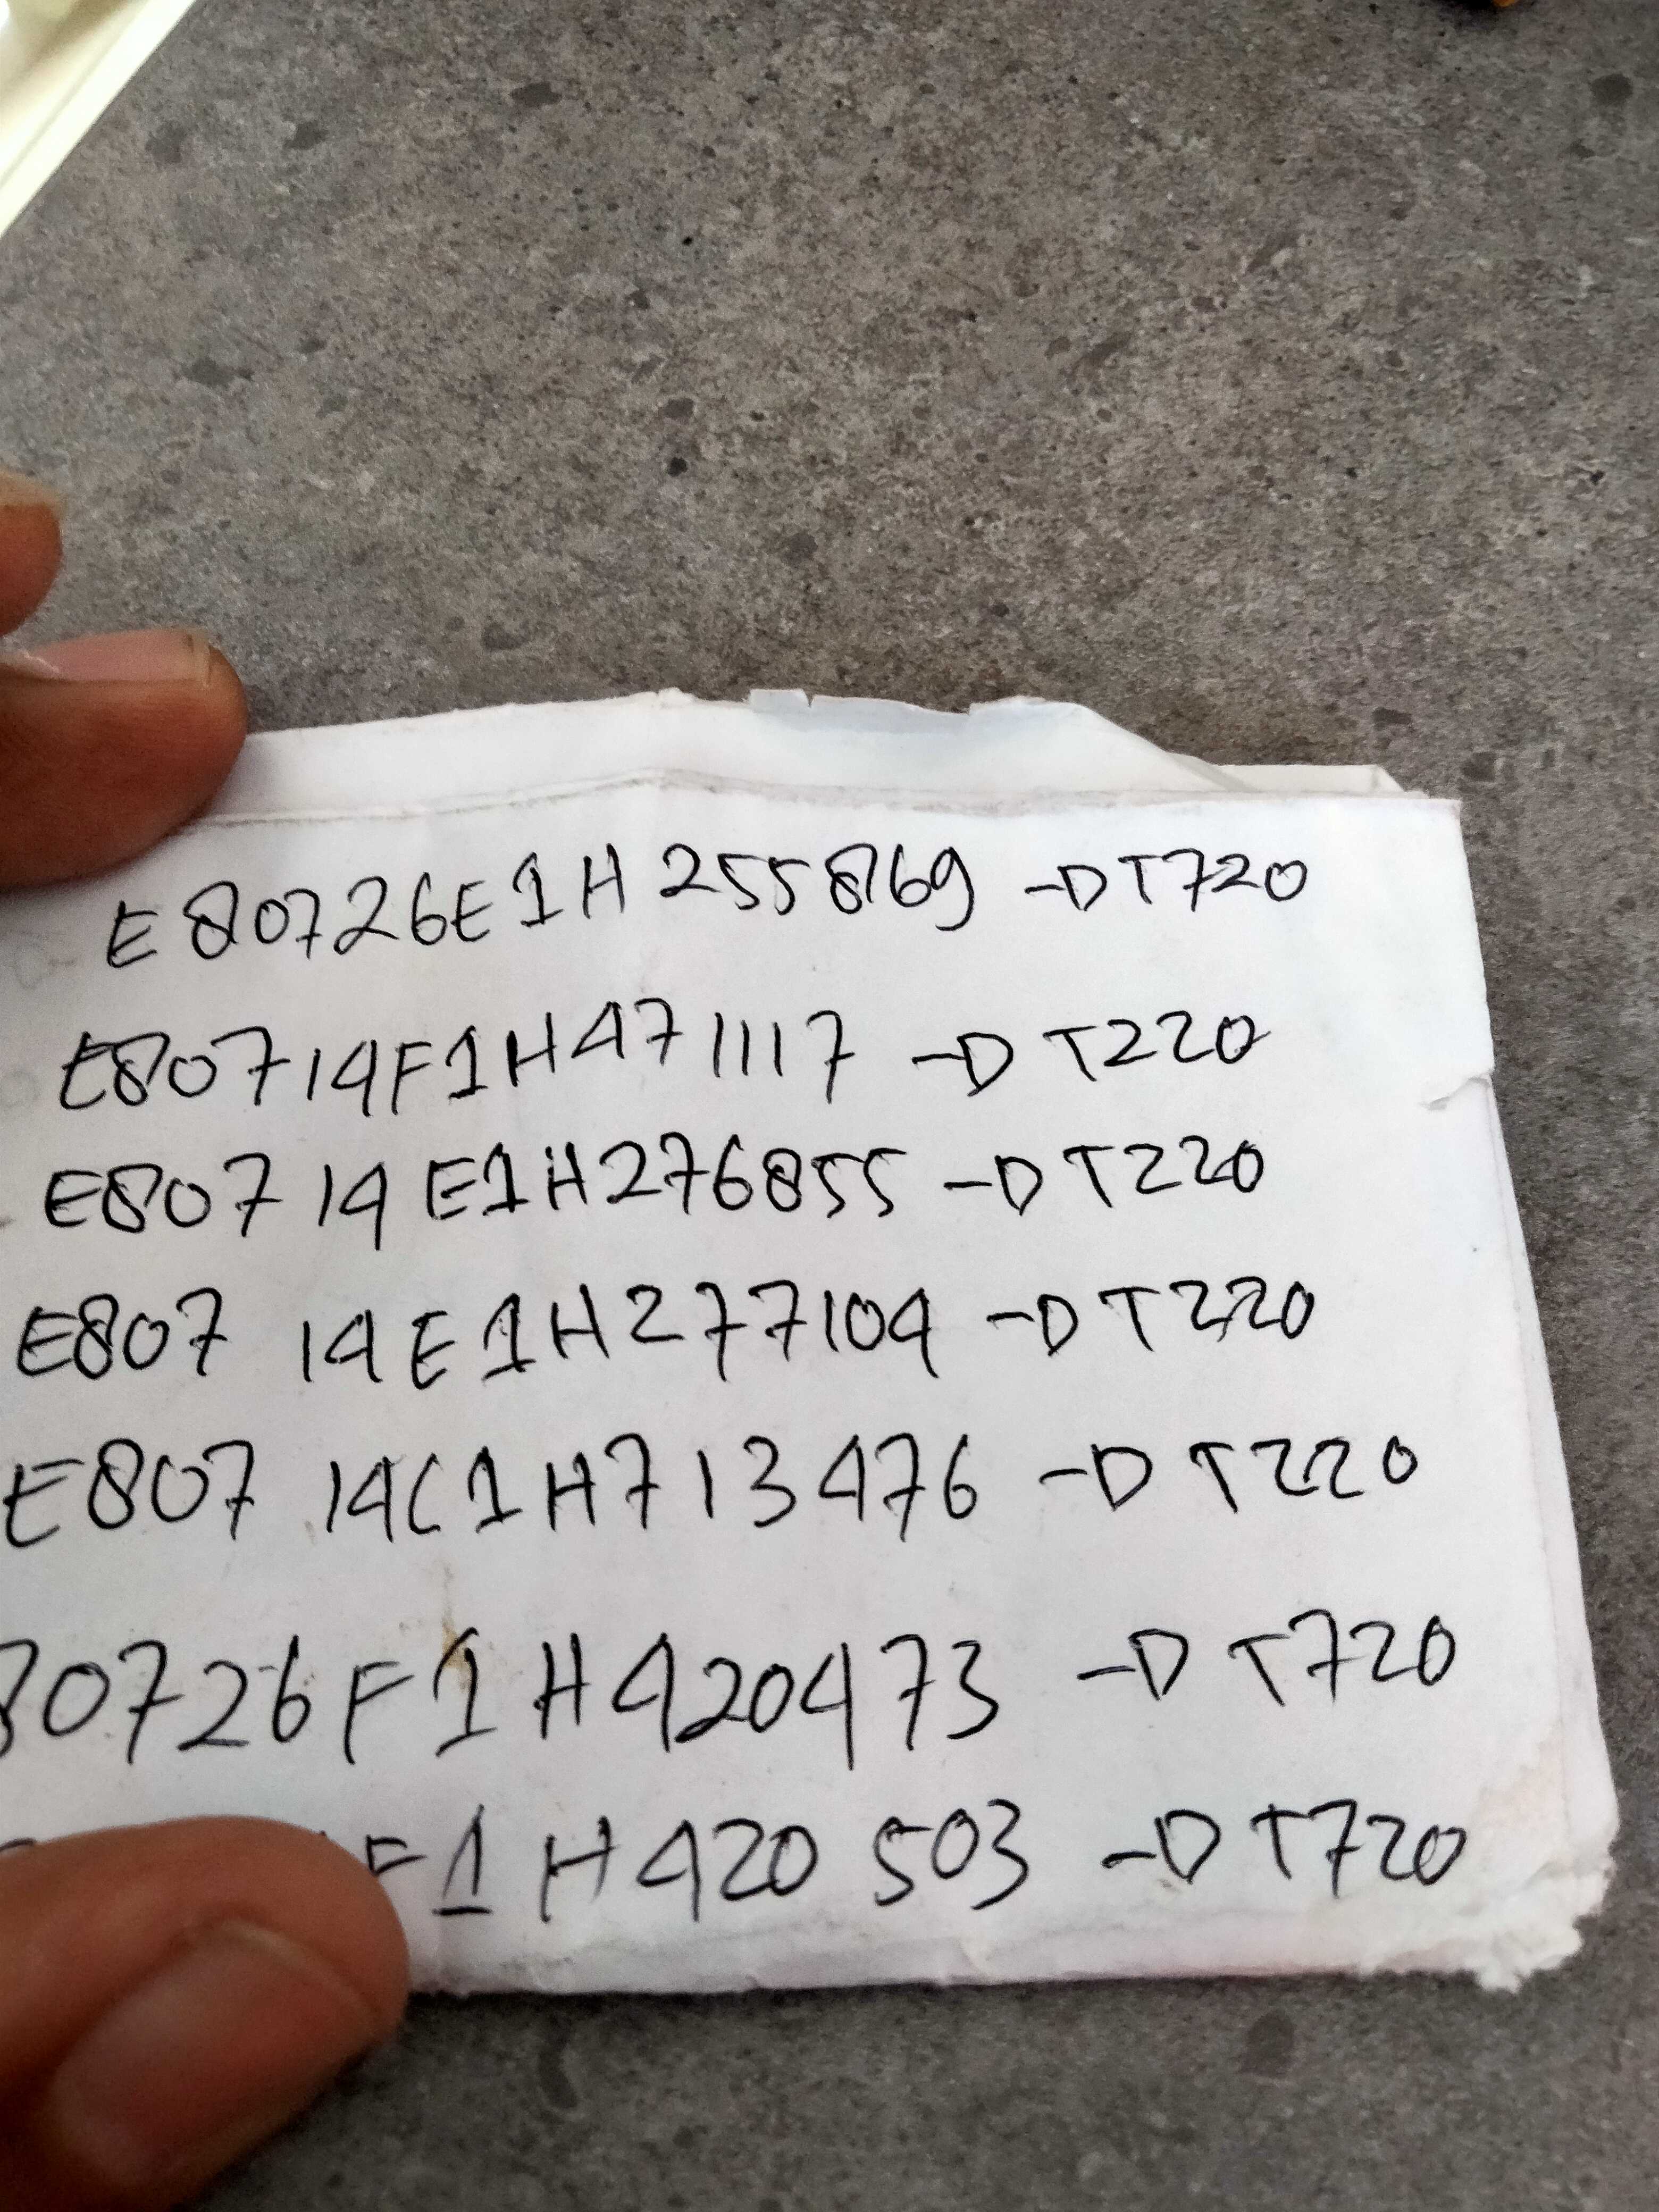 E80726E1H255869 -DT720
E80714F1H471117 -DT220
E80714E1H276855 -DT220
E80714E1H277104 -DT220
E80714C1H713476 -DT220
80726F1H420473 -DT720
F1H420503 -DT720